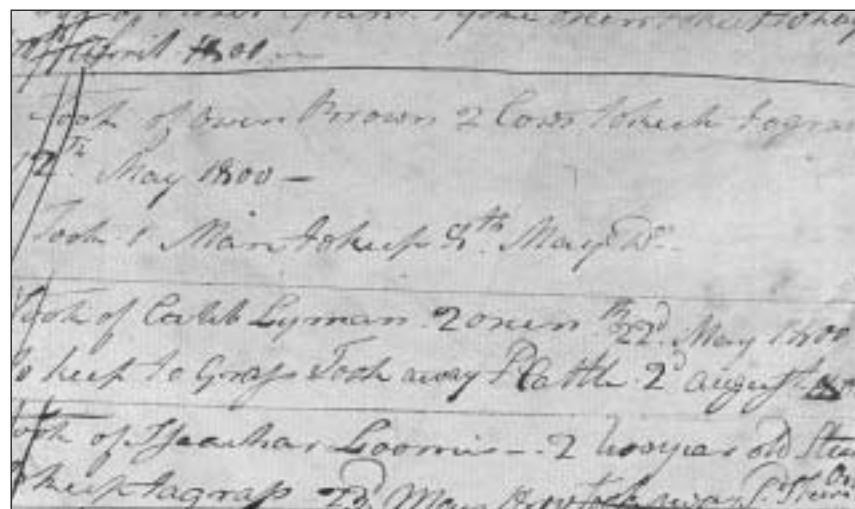 of oxen to keep to hay
April 1801 —
Took of Owen Brown 2 Cows to keep to gras
12th May 1800 —
Took 1 Mair to keep 8th May Do
Took of Caleb Lyman 2 oxen 22d May 1800
to keep to Grass Took away Cattle 2d August
Took of Issachar Loomis — 2 two year old Steers
to keep to grass 22d May took away Steers